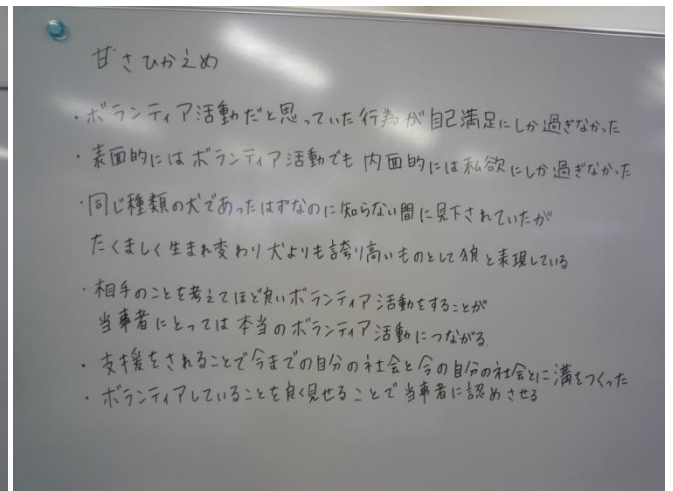 甘さひかえめ
・ボランティア活動だと思っていた行為が自己満足にしか過ぎなかった
・表面的にはボランティア活動でも内面的には私欲にしか過ぎなかった
・同じ種類の犬であったはずなのに知らない間に見下されていたが
たくましく生まれ変わり犬よりも誇り高いものとして狼と表現している
・相手のことを考えてほど良いボランティア活動をすることが
当事者にとっては本当のボランティア活動につながる
・支援をされることで今までの自分の社会と今の自分の社会とに溝をつくった
・ボランティアしていることを良く見せることで当事者に認めさせる